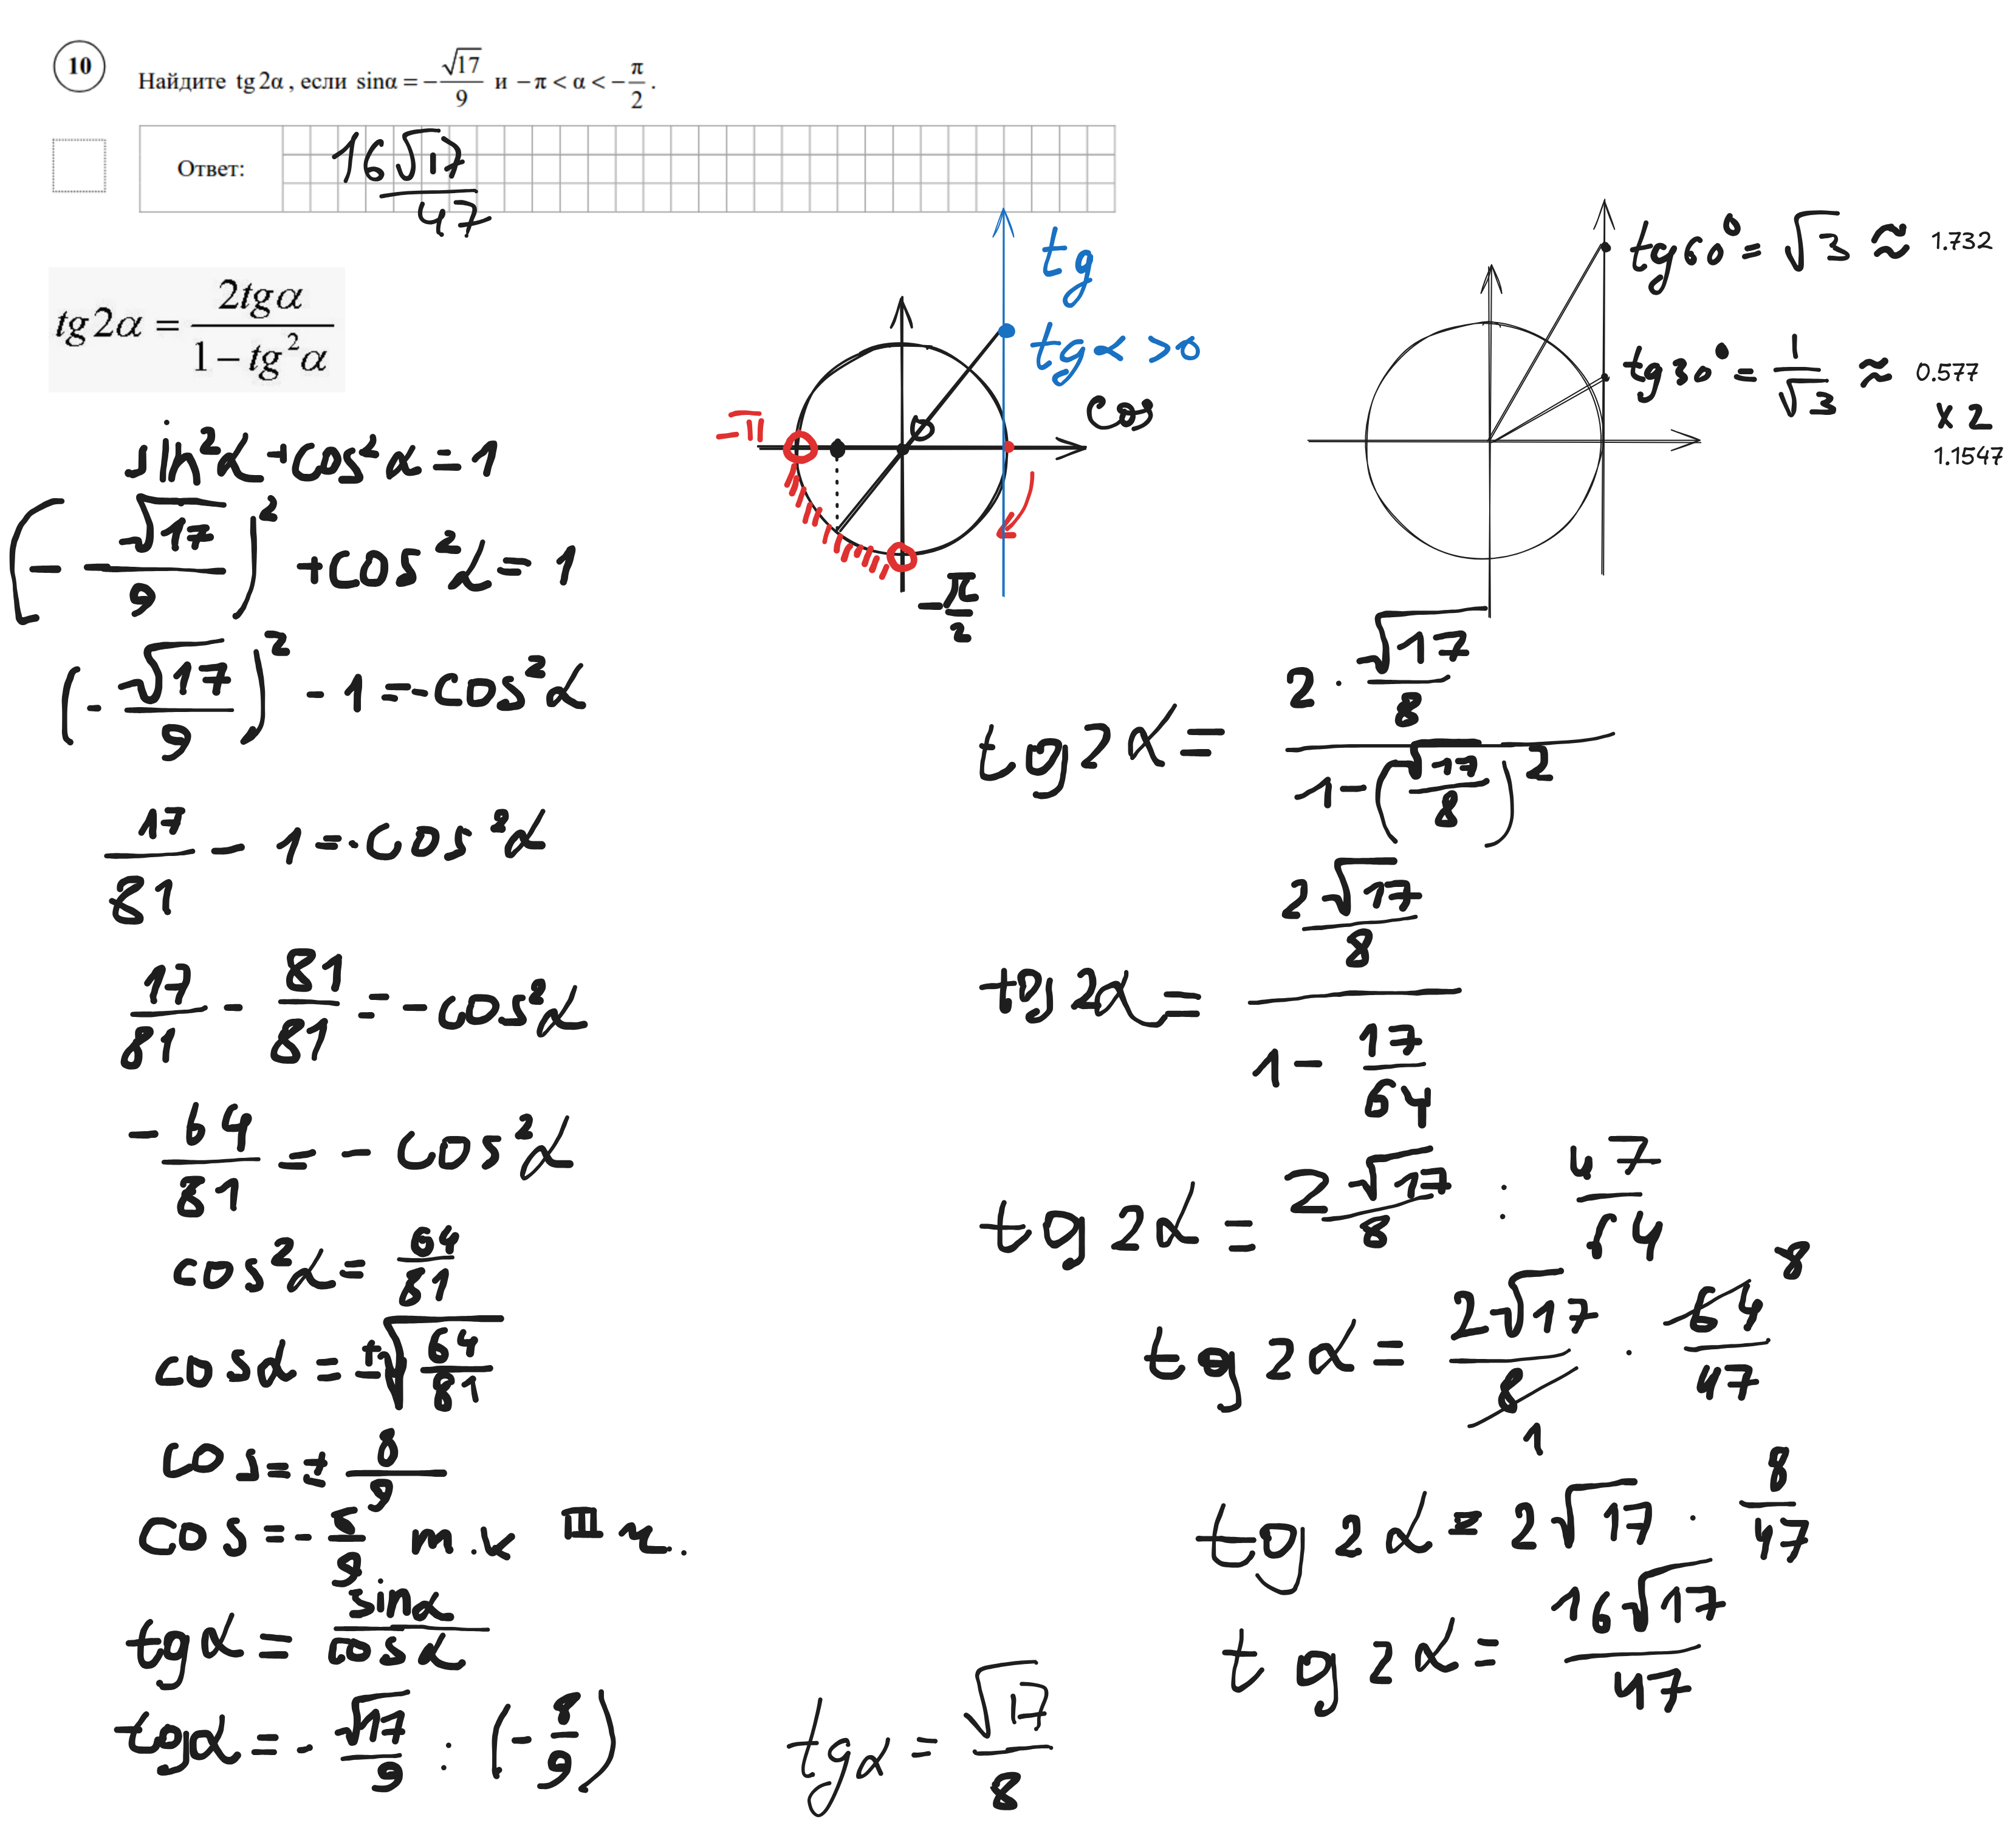 10
Найдите tg 2α, если sinα = −√17/9 и −π < α < −π/2.
Ответ: 16√17/47
tg2α = 2tgα/(1−tg²α)
sin²α+cos²α=1
(−√17/9)² +cos²α=1
(−√17/9)² − 1=−cos²α
17/81 − 1=−cos²α
17/81 − 81/81 = −cos²α
−64/81 = −cos²α
cos²α= 64/81
cosα = ±√(64/81)
cos=± 8/9
cos=− 8/9 т.к III ч.
tgα = sinα/cosα
tgα=− √17/9 : (−8/9)
tgα = √17/8
tg
tgα>0
cos
0
−π
−π/2
tg60°= √3 ≈ 1.732
tg30°= 1/√3 ≈ 0.577
x 2
1.1547
tg2α= (2·√17/8)/(1−(√17/8)²)
tg2α= (2√17/8)/(1−17/64)
tg2α= 2√17/8 : 47/64
tg2α= 2√17/8 · 64/47
8
1
tg2α= 2√17 · 8/47
tg2α= 16√17/47